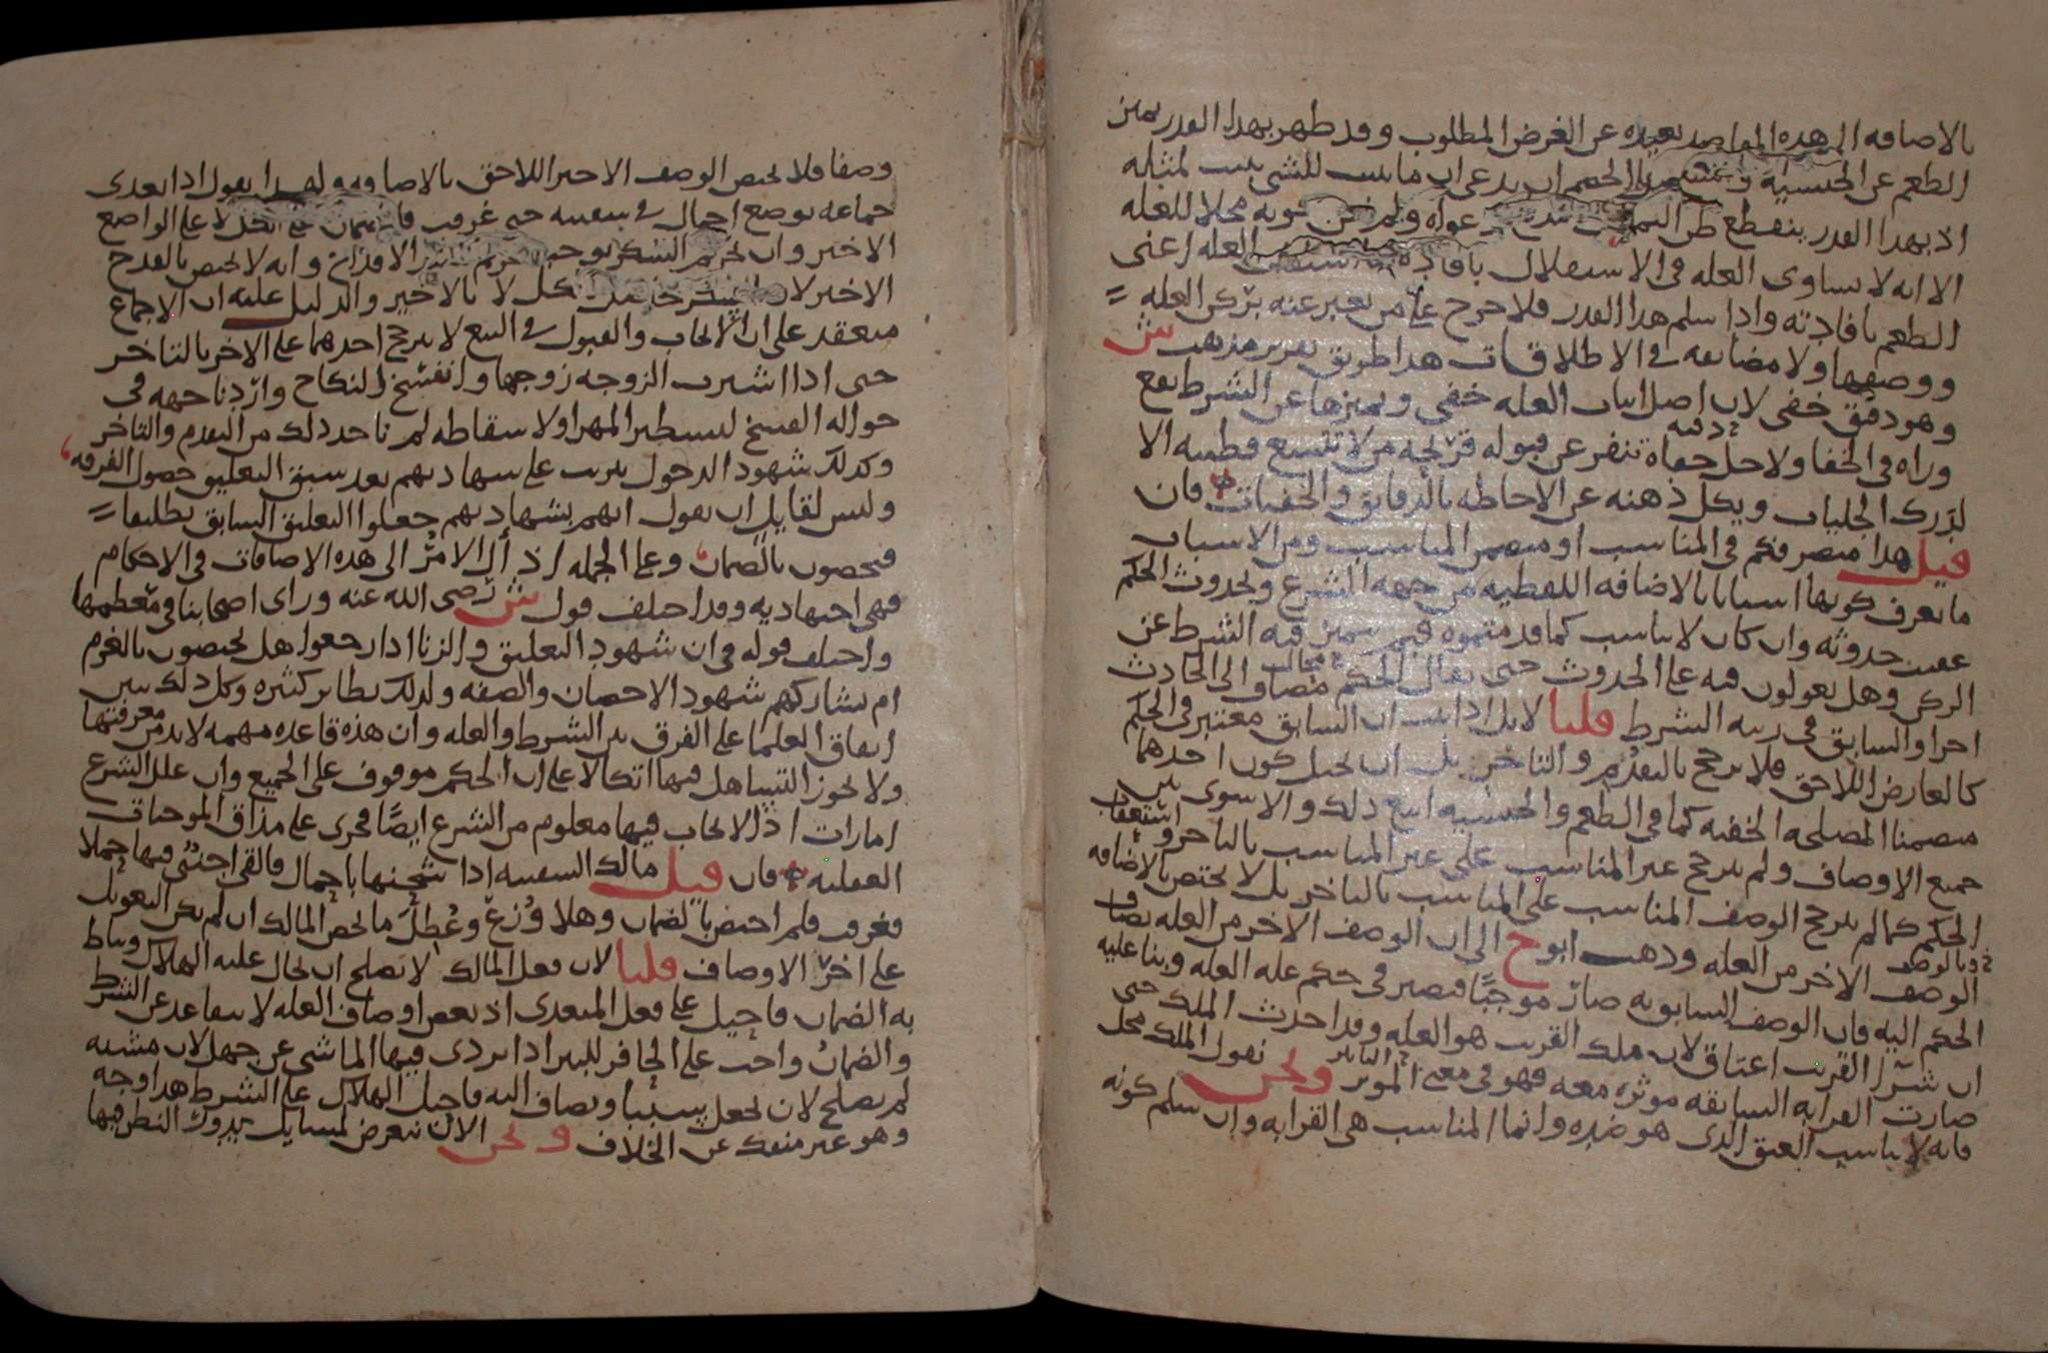 بالاضافه الى هذه المقاصد بعيده عن الغرض المطلوب وقد ظهر بهذا القدر تميز
الطعم عن الجنسية الخصم ان يدعى ان ما يثبت للشى يثبت لمثله
اذ بهذا القدر ينقطع ظن دعواه ولم كونه محلا للعله
الا انه لا يساوى العله فى الاستقلال بافاده العله اعنى
الطعم بافادته واذا سلم هذا القدر فلا حرج على من يعبر عنه بركن العله
ووصفها ولا مضايقه في الاطلاقات هذا طريق تقرير مذهب ش
وهو دقيق خفى لان اصل اثبات العله خفى وتميزها عن الشرط يقع
وراه في الخفا ولاجل دقته جفاه تنفر عن قبوله قريحه من لا تتسع فطنته الا
لدرك الجليات ويكل ذهنه عن الاحاطه بالدقايق والخفيات فان
قيل هذا متصرفكم في المناسب او متضمن المناسب ومن الاسباب
ما يعرف كونها اسبابا بالاضافه اللفظيه من جهه الشرع وبحدوث الحكم
عقيب حدوثه وان كان لا يناسب كما قدمتموه فبم يتميز فيه الشرط عن
الركن وهل يعولون فيه على الحدوث حتى يقال الحكم محال مضاف الى الحادث
اخرا والسابق فى رتبه الشرط قلنا لا بل اذا ثبت ان السابق معتبر فى الحكم
كالعارض اللاحق فلا يرجح بالتقدم والتاخر بل ان تخيل كون احدهما
متضمنا المصلحه الخفيه كما في الطعم والجنسيه اتبع ذلك والا سوى بين
جميع الاوصاف ولم يترجح غير المناسب على غير المناسب بالتاخر واستعقاب
الحكم كما لم يترجح الوصف المناسب على المناسب بالتاخر بل لا يختص بالاضافه
الوصف الاخر من العله وذهب ابو ح الى ان الوصف الاخر من العله يضاف
الحكم اليه فان الوصف السابق به صار موجبا فيصير فى حكم عله العله وبنا عليه
ان شرا القريب اعتاق لان ملك القريب هو العله وقد احدث الملك حتى
صارت القرابه السابقه موثره معه فهو فى معنى الموثر ونحن نقول الملك محل
فانه لا يناسب العتق الذى هو ضده وانما المناسب هى القرابه وان سلم كونه
وصفا فلا يختص الوصف الاخير اللاحق بالاضافه ولهذا يقول اذا تعدى
جماعه بوضع احمال في سفينه حتى غرقت فالضمان على الكل لا على الواضع
الاخير وان تحريم السكر يوجب تحريم الاقداح وانه لا يختص بالقدح
الاخير لان السكر حاصل بكل لا بالاخير والدليل عليه ان الاجماع
منعقد على ان الايجاب والقبول في البيع لا يترجح احدهما على الاخر بالتاخر
حتى اذا اشترت الزوجه زوجها وانفسخ النكاح واردنا جهه فى
حواله الفسخ لتشطير المهر او لاسقاطه لم ناخذ ذلك من التقدم والتاخر
وكذلك شهود الدخول يترتب على شهادتهم بعد سبق التعليق حصول الفرقه
وليس لقايل ان يقول انهم بشهادتهم جعلوا التعليق السابق تطليقا
فيخصون بالضمان وعلى الجمله اذ آل الامر الى هذه الاضافات في الاحكام
فهى اجتهاديه وقد اختلف قول ش رضى الله عنه وراى اصحابنا في معظمها
واختلف قوله في ان شهود التعليق والزنا اذا رجعوا هل يختصون بالغرم
ام يشاركهم شهود الاحصان والصفه ولذلك نظاير كثيره وكل ذلك يبين
اتفاق العلما على الفرق بين الشرط والعله وان هذه قاعده مهمه لا بد من معرفتها
ولا يجوز التساهل فيها اتكالا على ان الحكم موقوف على الجميع وان علل الشرع
امارات اذ الايجاب فيها معلوم من الشرع ايضا فجرى على مذاق الموجبات
العقليه فان قيل مالك السفينه اذا شحنها باحمال فالقى اجنبى فيها حملا
فغرقت فلم اختص بالضمان وهلا وزع وعطل ما يخص المالك ان لم يكن التعويل
على اخر الاوصاف قلنا لان فعل المالك لا يصلح ان يحال عليه الهلاك ويناط
به الضمان فاحيل على فعل المتعدى اذ بعض اوصاف العله لا يتقاعد عن الشرط
والضمان واجب على الحافر للبير اذا تردى فيها الماشى عن جهل لان مشيه
لم يصلح لان يجعل سببا ويضاف اليه فاحيل الهلاك على الشرط هذا وجه
وهو غير منفك عن الخلاف ونحن الان نتعرض لمسايل يدور النظر فيها